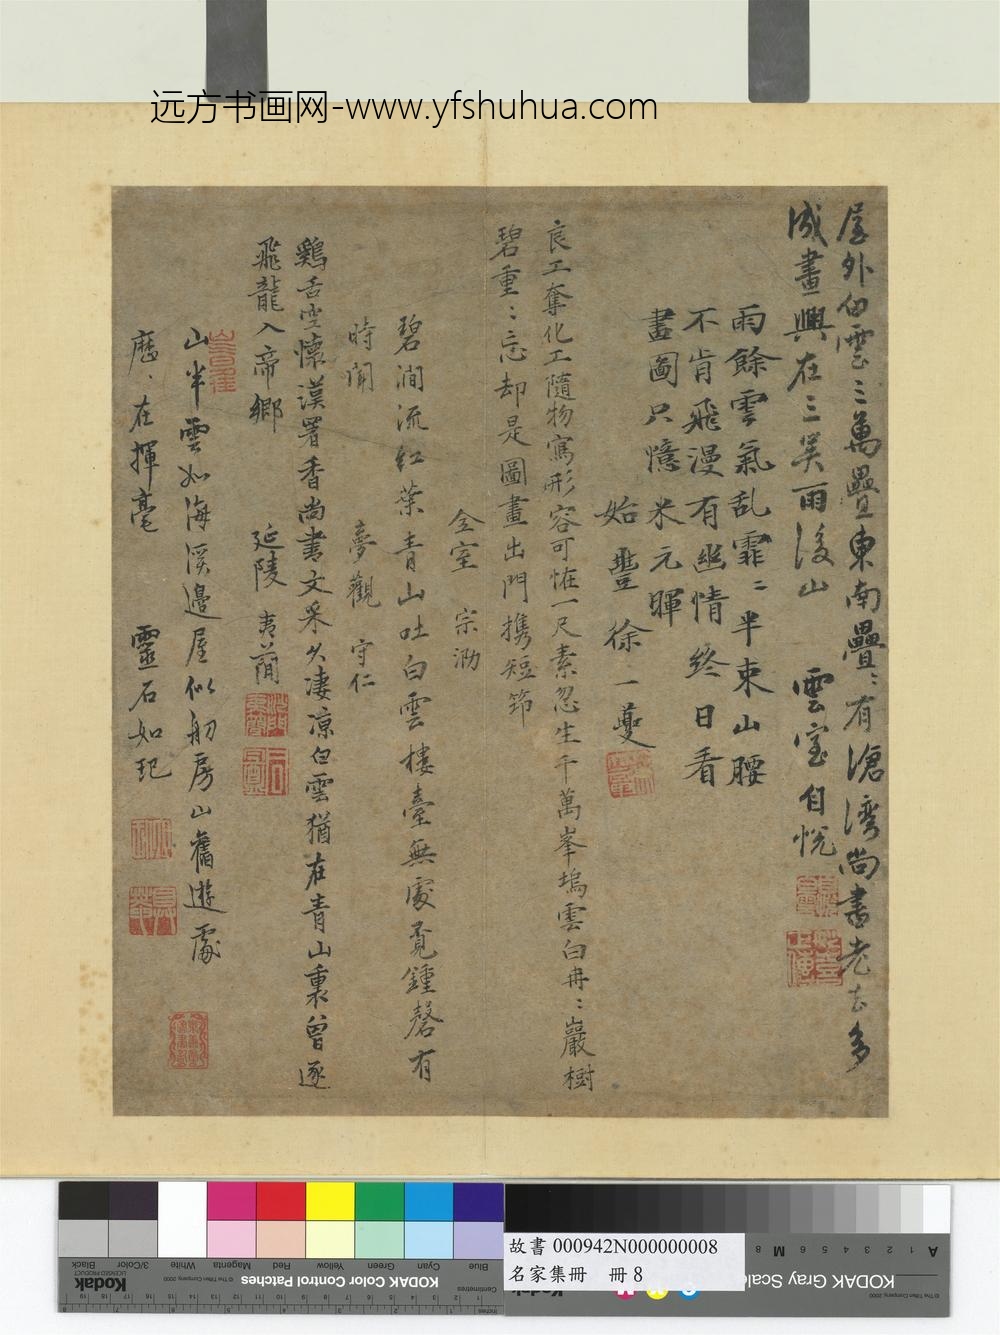 远方书画网-www.yfshuhua.com
屋外白雲三萬疊東南疊〻有滄灣尚書老去多
成畫興在三吴雨後山 雲室自悅
雨餘雲氣乱霏〻半束山腰
不肯飛漫有幽情終日看
畫圖只憶米元暉
始豐徐一夔
良工奪化工隨物寫形容可恠一尺素忽生千萬峯塢雲白冉〻巖樹
碧重〻忘却是圖畫出門携短笻
全室 宗泐
碧澗流紅葉青山吐白雲樓臺無處覔鍾磬有
時聞 夢觀 守仁
鷄舌空懷漢署香尚書文采久凄凉白雲猶在青山裏曾逐
飛龍入帝鄉 延陵 夷簡
山半雲如海溪邊屋似舠房山舊遊處
歷〻在揮毫 靈石如玘
故書 000942N000000008
名家集冊 冊 8
KODAK Color Control Patches
Kodak
LICENSED PRODUCT
© The Tiffen Company, 2000
Blue Cyan Green Yellow Red Magenta White 3/Color Black
Centimetres
Inches
KODAK Gray Scale
A 1 2 3 4 5 6 M 8